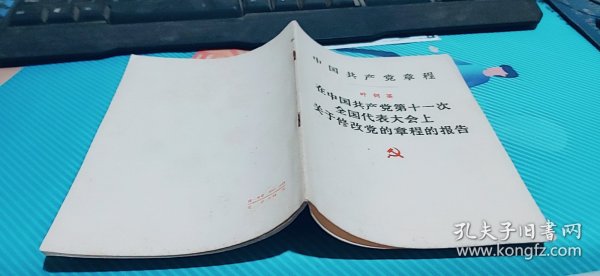 中国共产党章程
叶剑英
在中国共产党第十一次
全国代表大会上
关于修改党的章程的报告
孔夫子旧书网
www.kongfz.com